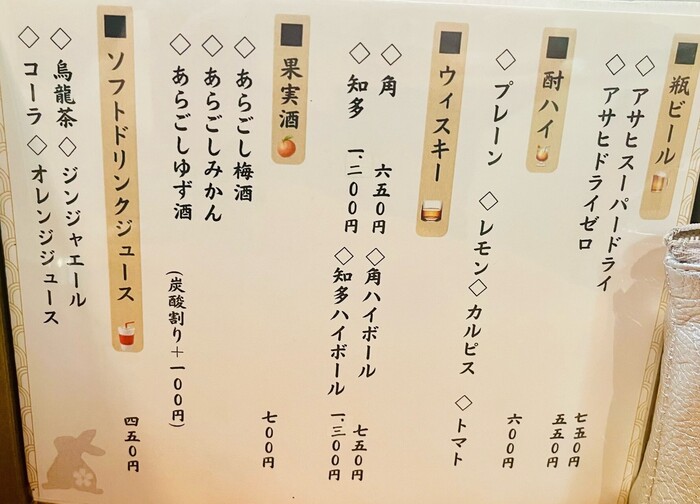 ■瓶ビール
◇アサヒスーパードライ 七五〇円
◇アサヒドライゼロ 五五〇円
■酎ハイ 六〇〇円
◇プレーン ◇レモン ◇カルピス ◇トマト
■ウィスキー
◇角 六五〇円 ◇角ハイボール 七五〇円
◇知多 一、二〇〇円 ◇知多ハイボール 一、三〇〇円
■果実酒 七〇〇円
◇あらごし梅酒
◇あらごしみかん
◇あらごしゆず酒 (炭酸割り+一〇〇円)
■ソフトドリンクジュース 四五〇円
◇烏龍茶 ◇ジンジャエール
◇コーラ ◇オレンジジュース